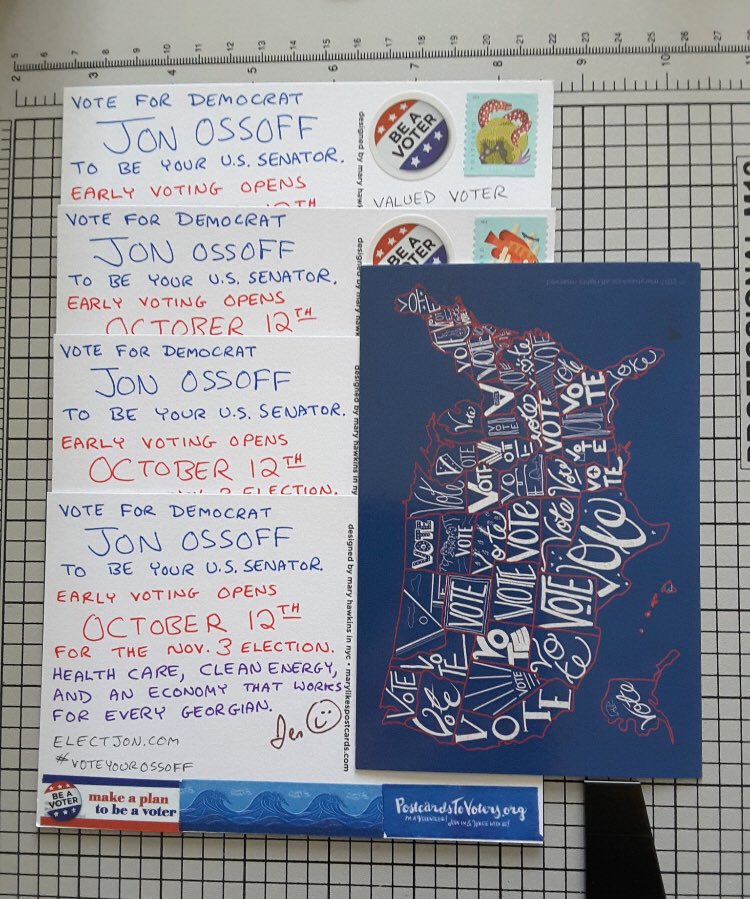 VOTE FOR DEMOCRAT
JON OSSOFF
TO BE YOUR U.S. SENATOR.
EARLY VOTING OPENS
BE A VOTER
VALUED VOTER
designed by mary hawk
VOTE FOR DEMOCRAT
JON OSSOFF
TO BE YOUR U.S. SENATOR.
EARLY VOTING OPENS
OCTOBER 12TH
BE A VOTER
designed by mary hawk
VOTE FOR DEMOCRAT
JON OSSOFF
TO BE YOUR U.S. SENATOR.
EARLY VOTING OPENS
OCTOBER 12TH
designed by mary hawkins in ny
VOTE FOR DEMOCRAT
JON OSSOFF
TO BE YOUR U.S. SENATOR.
EARLY VOTING OPENS
OCTOBER 12TH
FOR THE NOV. 3 ELECTION.
HEALTH CARE, CLEAN ENERGY,
AND AN ECONOMY THAT WORKS
FOR EVERY GEORGIAN.
Jen
ELECTJON.COM
#VOTEYOUROSSOFF
designed by mary hawkins in nyc • marylikespostcards.com
BE A VOTER
make a plan
to be a voter
PostcardsToVoters.org
VOTE
VOTE
VOTE
VOTE
VOTE
VOTE
VOTE
VOTE
VOTE
VOTE
PROFESSIONAL